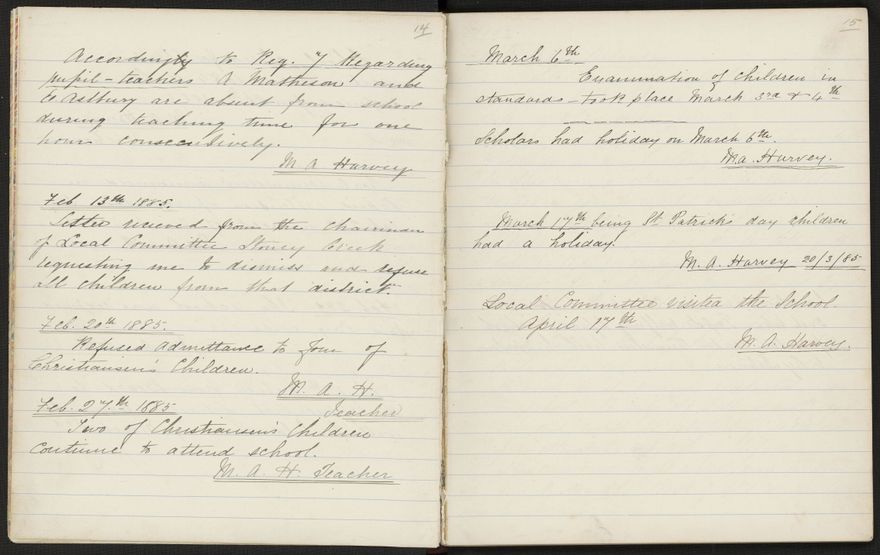 14
Accordingly to Reg. 7 Regarding
pupil-teachers A Matheson and
C. Astbury are absent from school
during teaching time for one
hour consecutively.
M A Harvey
Feb 13th 1885.
Letter recieved from the chairman
of Local Committee Stoney Creek
requesting me to dismiss and refuse
all children from that district.
Feb. 20th 1885.
Refused admittance to four of
Christiansen's Children.
M. A. H.
Teacher
Feb. 27th 1885
Two of Christiansen's Children
continue to attend school.
M. A. H. Teacher
15
March 6th
Examination of children in
standards took place March 3rd & 4th
Scholars had holiday on March 6th.
M.A. Harvey.
March 17th being St Patrick's day children
had a holiday.
M. A. Harvey 20/3/85
Local Committee visited the School
April 17th
M. A. Harvey.